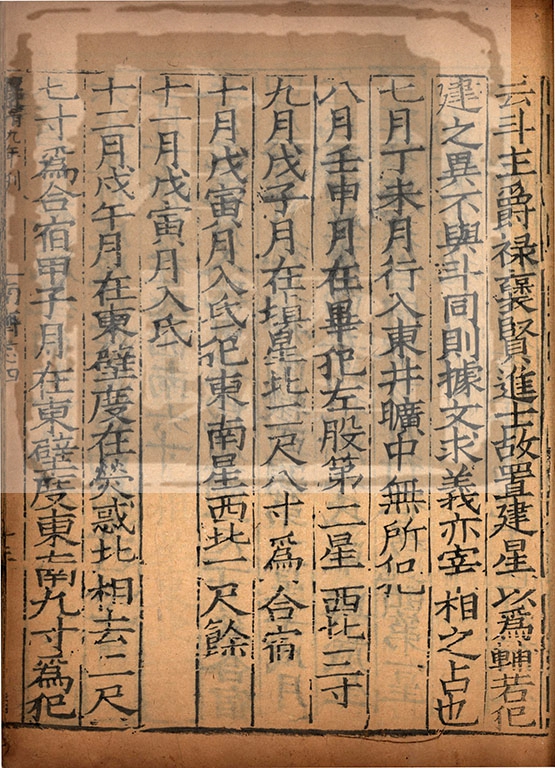 云斗主爵禄襃賢進士故置建星以爲輔若犯
建之異不與斗同則據文求義亦宰相之占也
七月丁未月行入東井曠中無所犯
八月壬申月在畢犯左股第二星西北三寸
九月戊子月在填星北二尺八寸爲合宿
十月戊寅月入氐犯東南星西北一尺餘
十一月戊寅月入氐
十二月戊午月在東壁度在熒惑北相去二尺
七寸爲合宿甲子月在東壁度東南九寸爲犯